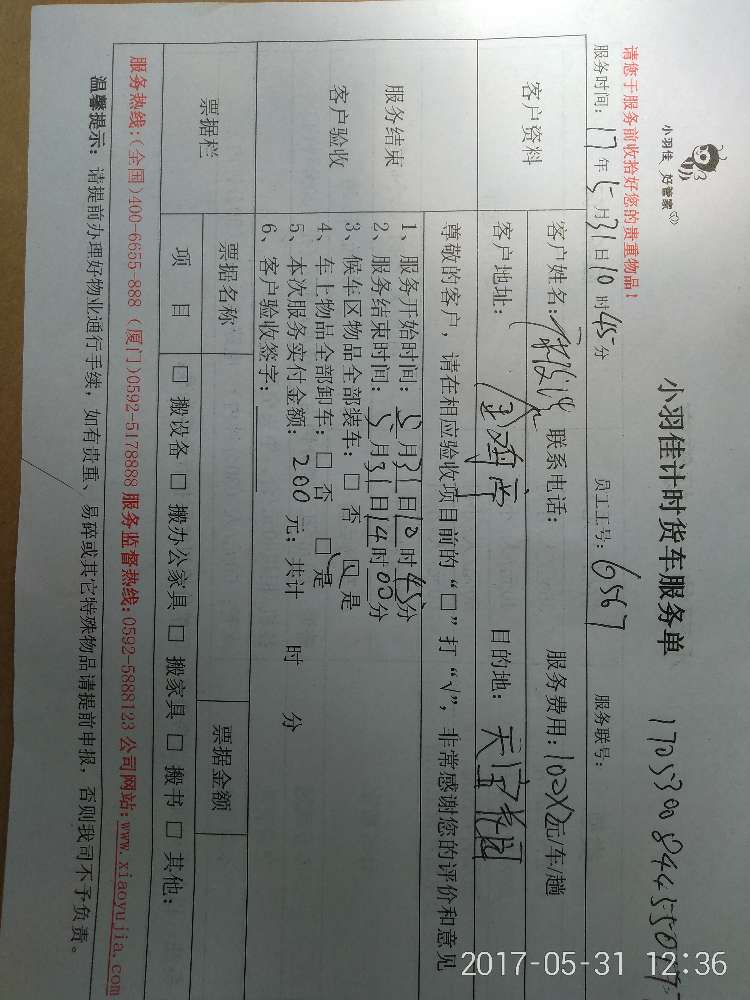 小羽佳 好管家
小羽佳计时货车服务单
请您于服务前收拾好您的贵重物品!
服务时间: 17 年 5 月 31 日 10 时 45 分 员工工号: 6567 服务联号:
客户资料
客户姓名: 联系电话: 服务费用: 元/车/趟
客户地址: 目的地: 天宝花园
服务结束
客户验收
尊敬的客户，请在相应验收项目前的“□”打“√”，非常感谢您的评价和意见
1、服务开始时间: 5 月 31 日 10 时 45 分
2、服务结束时间: 5 月 31 日 14 时 00 分
3、候车区物品全部装车: □ 否 □ 是
4、车上物品全部卸车: □ 否 □ 是
5、本次服务实付金额: 200 元; 共计 时 分
6、客户验收签字:
票据栏
票据名称 票据金额
项 目 □ 搬设备 □ 搬办公家具 □ 搬家具 □ 搬书 □ 其他:
服务热线:(全国)400-6655-888 (厦门)0592-5178888 服务监督热线:0592-5888123 公司网站:www.xiaoyujia.com
温馨提示: 请提前办理好物业通行手续，如有贵重、易碎或其它特殊物品请提前申报，否则我司不予负责。
2017-05-31 12:36